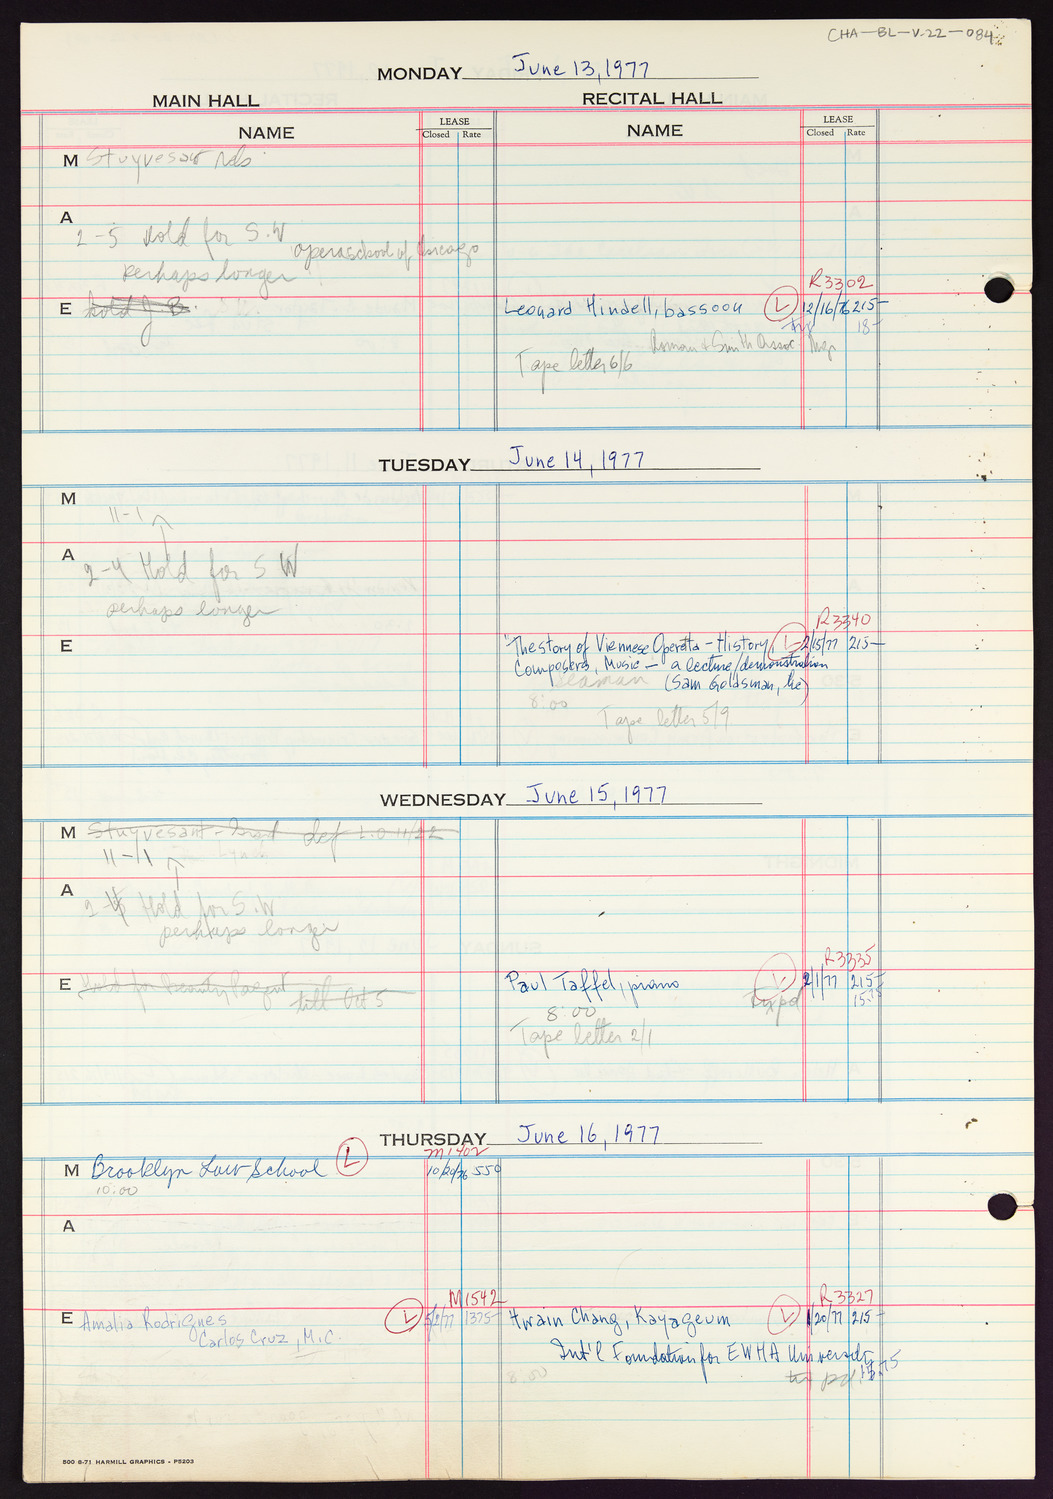 CHA-BL-V.22-084
MONDAY June 13, 1977
MAIN HALL RECITAL HALL
NAME LEASE Closed Rate NAME LEASE Closed Rate
M Stuyvesant
A
2-5 Hold for S.W opera school of Chicago
perhaps longer
R3302
E hold
Leonard Hindell, bassoon L 12/16/76 215-
18-
& Smith Assoc Mgr
Tape letter 6/6
TUESDAY June 14, 1977
M
11-1
A
2-4 Hold for S W
perhaps longer
R3340
E "The story of Viennese Operetta - History, L 2/15/77 215-
Composers, Music - a lecture/demonstration
(Sam Goldsman, lec)
Seaman
8:00
Tape letter 5/9
WEDNESDAY June 15, 1977
M Stuyvesant - def L.O 11/22
11-1
A
2- Hold for S.W
perhaps longer
R3335
E hold for beauty Pagent till Oct 5
Paul Taffel, piano L 2/1/77 215-
8:00 15.75
Tape letter 2/1
THURSDAY June 16, 1977
M1402
M Brooklyn Law School L 10/20/76 550
10:00
A
M1542 R3327
E Amalia Rodrigues L 5/2/77 1375- Hwain Chang, Kayageum L 1/20/77 215-
Carlos Cruz, M.C.
Int'l Foundation for EWHA University
8:00 pd 15.75
500 6-71 HARMILL GRAPHICS - P5203